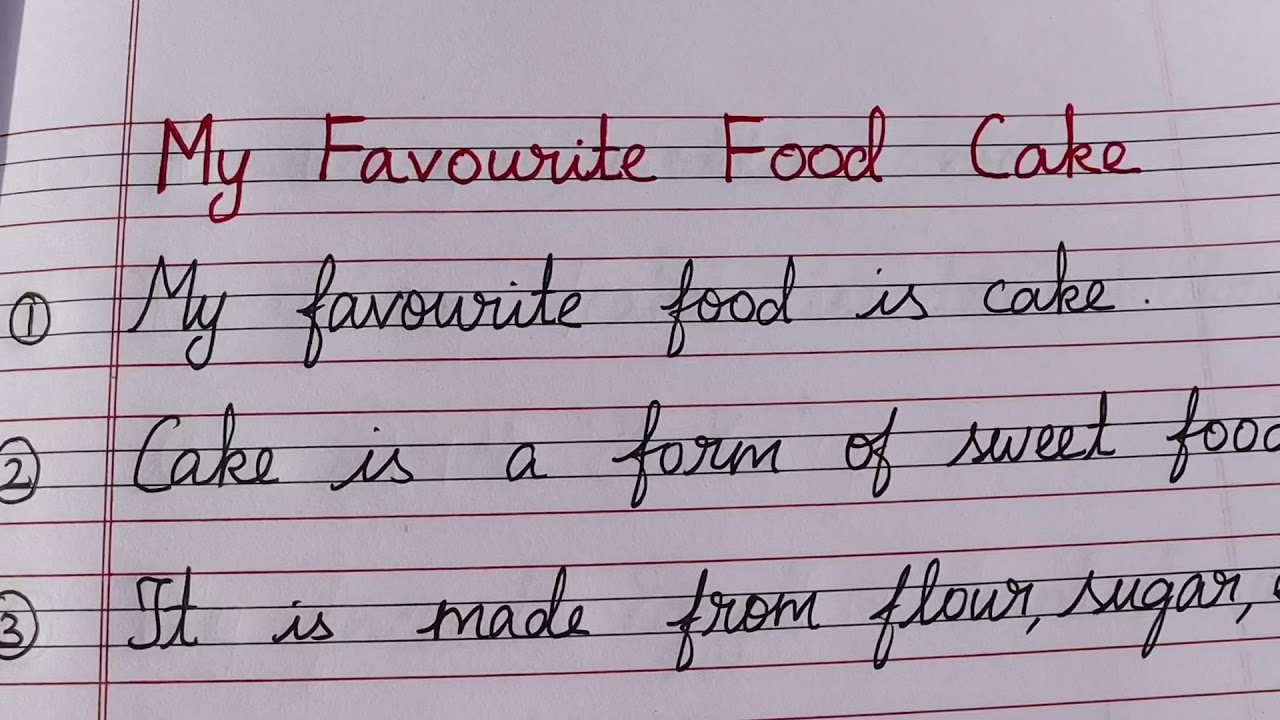 My Favourite Food Cake
① My favourite food is cake.
② Cake is a form of sweet food
③ It is made from flour, sugar,